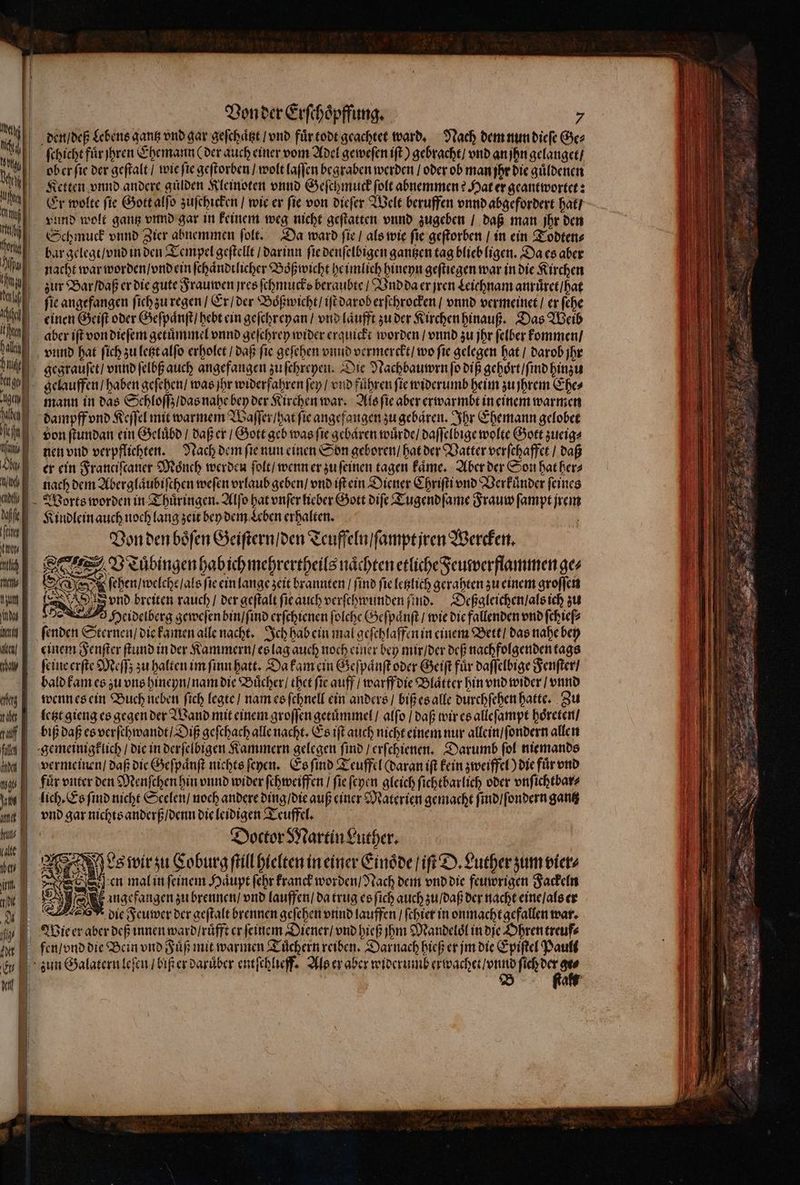 Von der Erschöpffung. 7
den/deß Lebens gantz vnd gar geschätzt / vnd für todt geachtet ward. Nach dem nun diese Ge⸗
schicht für jhren Ehemann (der auch einer vom Adel gewesen ist) gebracht/ vnd an jhn gelanget/
ob er sie der gestalt / wie sie gestorben / wolt lassen begraben werden / oder ob man jhr die güldenen
Ketten vnnd andere gülden Kleinoten vnnd Geschmuck solt abnemmen? Hat er geantwortet:
Er wolte sie Gott also zuschicken / wie er sie von dieser Welt beruffen vnnd abgefordert hat/
vnnd wolt gantz vnnd gar in keinem weg nicht gestatten vnnd zugeben / daß man jhr den
Schmuck vnnd Zier abnemmen solt. Da ward sie / als wie sie gestorben / in ein Todten⸗
bar gelegt/vnd in den Tempel gestellt / darinn sie denselbigen gantzen tag blieb ligen. Da es aber
nacht war worden/vnd ein schändtlicher Bößwicht heimlich hineyn gestiegen war in die Kirchen
zur Bar/daß er die gute Frauwen jres schmucks beraubte / Vnd da er jren Leichnam anrüret/hat
sie angefangen sich zu regen / Er/ der Bößwicht/ ist darob erschrocken / vnnd vermeinet / er sehe
einen Geist oder Gespänst/ hebt ein geschrey an / vnd läufft zu der Kirchen hinauß. Das Weib
aber ist von diesem getümmel vnnd geschrey wider erquickt worden / vnnd zu jhr selber kommen/
vnnd hat sich zu letzt also erholet / daß sie gesehen vnnd vermerckt/ wo sie gelegen hat / darob jhr
gegrauset/ vnnd selbß auch angefangen zu schreyen. Die Nachbauwrn so diß gehört/sind hinzu
gelauffen/ haben gesehen/ was jhr widerfahren sey / vnd führen sie widerumb heim zu jhrem Ehe⸗
mann in das Schlossz/das nahe bey der Kirchen war. Als sie aber erwarmbt in einem warmen
dampff vnd Kessel mit warmem Wasser/hat sie angefangen zu gebären. Ihr Ehemann gelobet
von stundan ein Gelübd / daß er / Gott geb was sie gebären würde/ dasselbige wolte Gott zueig⸗
nen vnd verpflichten. Nach dem sie nun einen Son geboren/ hat der Vatter verschaffet / daß
er ein Franciscaner Mönch werden solt/ wenn er zu seinen tagen käme. Aber der Son hat her⸗
nach dem Abergläubischen wesen vrlaub geben/ vnd ist ein Diener Christi vnd Verkünder seines
Worts worden in Thüringen. Also hat vnser lieber Gott dise Tugendsame Frauw sampt jrem
Kindlein auch noch lang zeit bey dem Leben erhalten.
Von den bösen Geistern/den Teuffeln/sampt jren Wercken.
ZV Tübingen hab ich mehrertheils nächten etliche Feuwerflammen ge⸗
sehen/welche/als sie ein lange zeit brannten / sind sie letzlich gerahten zu einem grossen
vnd breiten rauch / der gestalt sie auch verschwunden sind. Deßgleichen/als ich zu
Heidelberg gewesen bin/sind erschienen solche Gespänst / wie die fallenden vnd schies⸗
senden Sternen/ die kamen alle nacht. Ich hab ein mal geschlaffen in einem Bett/ das nahe bey
einem Fenster stund in der Kammern/ es lag auch noch einer bey mir/der deß nachfolgenden tags
seine erste Messz zu halten im sinn hatt. Da kam ein Gespänst oder Geist für dasselbige Fenster/
bald kam es zu vns hineyn/ nam die Bücher/ thet sie auff / warff die Blätter hin vnd wider / vnnd
wenn es ein Buch neben sich legte/ nam es schnell ein anders / biß es alle durchsehen hatte. Zu
letzt gieng es gegen der Wand mit einem grossen getümmel / also / daß wir es allesampt höreten/
biß daß es verschwandt/ Diß geschach alle nacht. Es ist auch nicht einem nur allein/sondern allen
gemeinigklich / die in derselbigen Kammern gelegen sind / erschienen. Darumb sol niemands
vermeinen/ daß die Gespänst nichts seyen. Es sind Teuffel (daran ist kein zweiffel) die für vnd
für vnter den Menschen hin vnnd wider schweiffen / sie seyen gleich sichtbarlich oder vnsichtbar⸗
lich. Es sind nicht Seelen/ noch andere ding/die auß einer Materien gemacht sind/sondern gantz
vnd gar nichts anderß/denn die leidigen Teuffel.
Doctor Martin Luther.
ALs wir zu Coburg still hielten in einer Einöde / ist D. Luther zum vier⸗
en mal in seinem Häupt sehr kranck worden/ Nach dem vnd die feuwrigen Fackeln
angefangen zu brennen/ vnd lauffen/ da trug es sich auch zu/daß der nacht eine/als er
die Feuwer der gestalt brennen gesehen vnnd lauffen / schier in onmacht gefallen war.
Wie er aber deß innen ward/rüfft er seinem Diener/ vnd hieß jhm Mandelöl in die Ohren treuf⸗
fen/vnd die Bein vnd Füß mit warmen Tüchern reiben. Darnach hieß er jm die Epistel Pauli
zun Galatern lesen / biß er darüber entschlieff. Als er aber widerumb erwachet/vnnd sich der ge⸗
B stalt